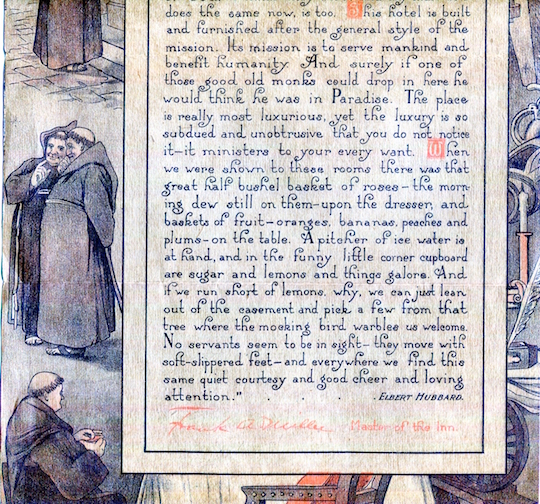 does the same now, is too. This hotel is built
and furnished after the general style of the
mission. Its mission is to serve mankind and
benefit humanity. And surely if one of
those good old monks could drop in here he
would think he was in Paradise. The place
is really most luxurious, yet the luxury is so
subdued and unobtrusive that you do not notice
it—it ministers to your every want. When
we were shown to these rooms there was that
great half bushel basket of roses—the morn-
ing dew still on them—upon the dresser, and
baskets of fruit—oranges, bananas, peaches and
plums—on the table. A pitcher of ice water is
at hand, and in the funny little corner cupboard
are sugar and lemons and things galore. And
if we run short of lemons, why, we can just lean
out of the casement and pick a few from that
tree where the mocking bird warbles us welcome.
No servants seem to be in sight—they move with
soft-slippered feet—and everywhere we find this
same quiet courtesy and good cheer and loving
attention." . . . Elbert Hubbard.
Frank Miller Master of the Inn.